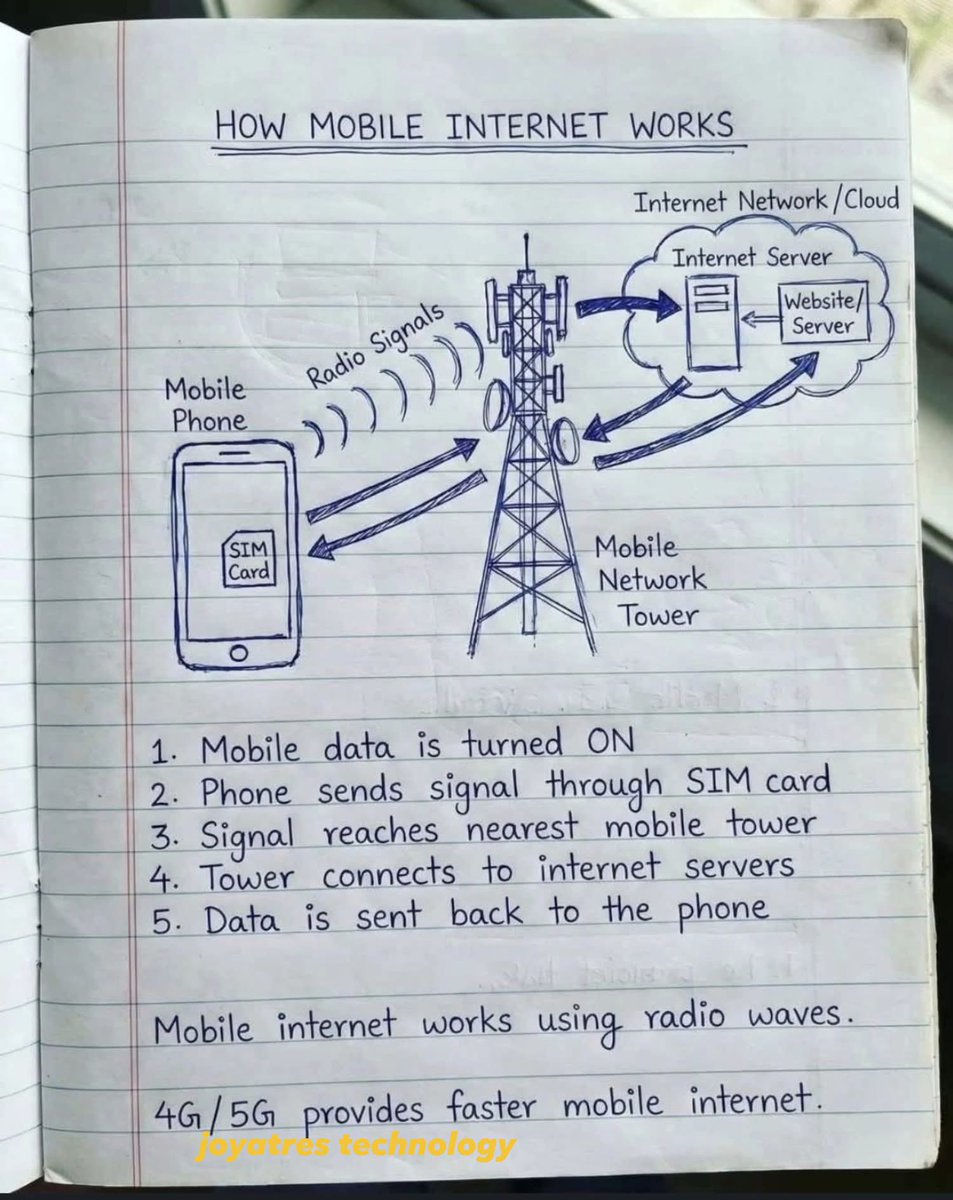 HOW MOBILE INTERNET WORKS
Internet Network/Cloud
Internet Server
Website/
Server
Radio Signals
Mobile
Phone
SIM
Card
Mobile
Network
Tower
1. Mobile data is turned ON
2. Phone sends signal through SIM card
3. Signal reaches nearest mobile tower
4. Tower connects to internet servers
5. Data is sent back to the phone
Mobile internet works using radio waves.
4G/5G provides faster mobile internet.
joyatres technology